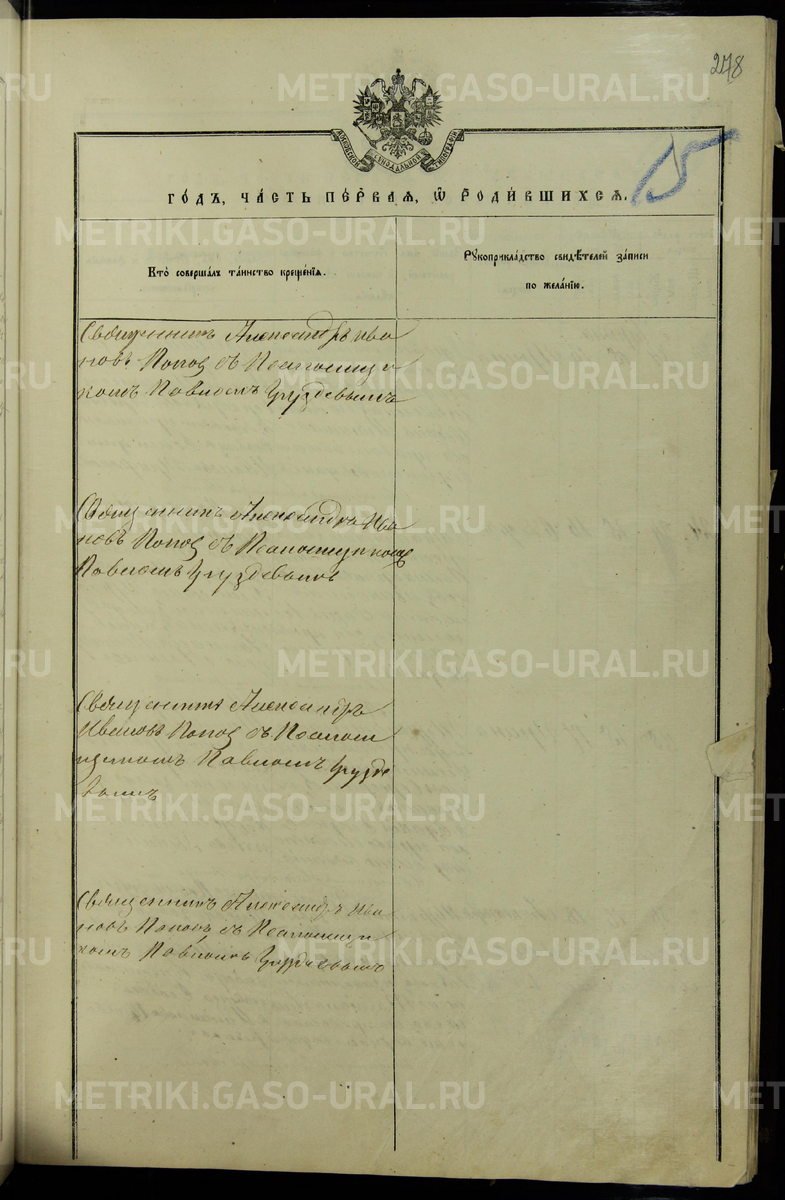 278
МОСКОВСКОЙ СѴНОДАЛЬНОЙ ТИПОГРАФІИ
15
ГО́ДЪ, ЧА́СТЬ ПЕ́РВАЯ, Ѽ РОДИ́ВШИХСЯ.
Кто̀ соверша́лъ та́инство креще́нїя.
Рꙋкоприкла́дство свидѣ́телей за́писи
по жела́нїю.
Священникъ Александръ Ива
новъ Попов съ Псаломщи
комъ Павломъ Груздевымъ
Священникъ Александръ Ива
новъ Попов съ Псаломщикомъ
Павломъ Груздевымъ
Священникъ Александръ
Ивановъ Попов съ Псалом
щикомъ Павломъ Грузде
вымъ
Священникъ Александръ Ива
новъ Поповъ съ Псаломщи
комъ Павломъ Груздевымъ
METRIKI.GASO-URAL.RU